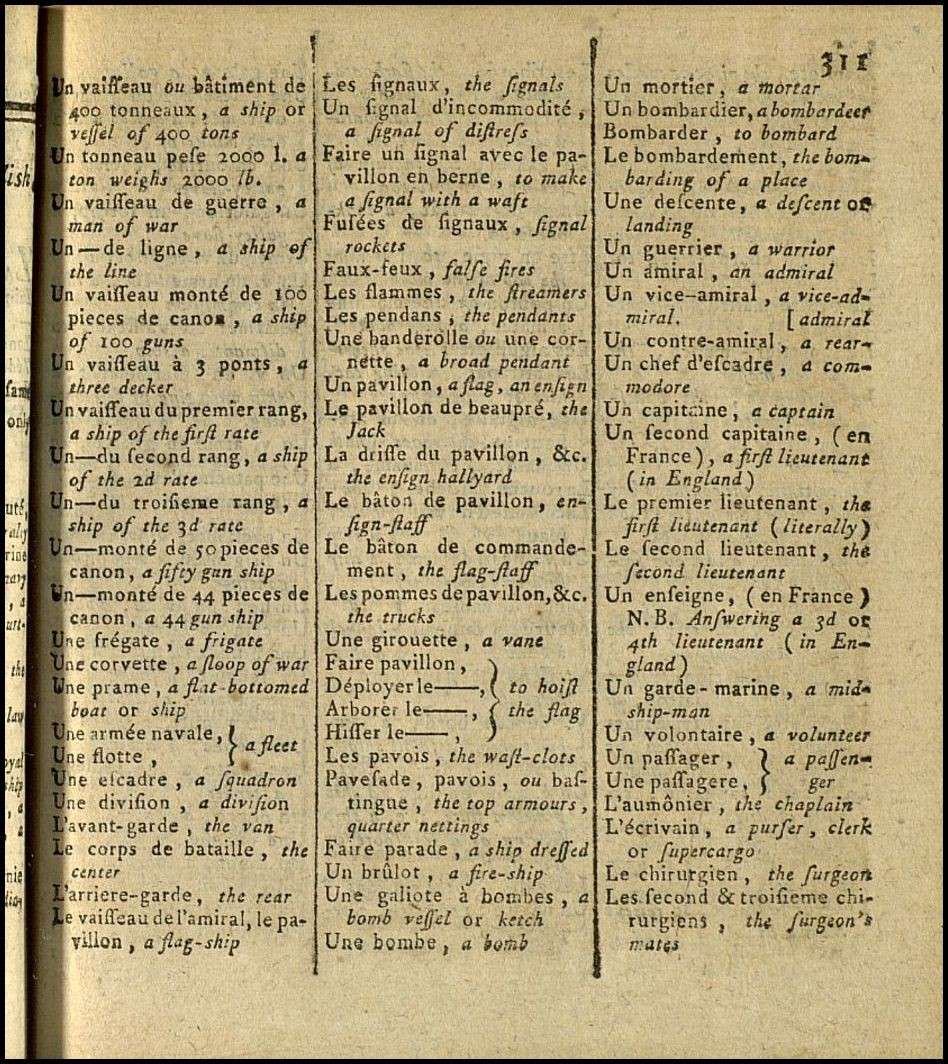 311
Un vaiſſeau ou bâtiment de
400 tonneaux, a ship or
veſſel of 400 tons
Un tonneau peſe 2000 l. a
ton weighs 2000 lb.
Un vaiſſeau de guerre, a
man of war
Un—de ligne, a ship of
the line
Un vaiſſeau monté de 100
pieces de canon, a ship
of 100 guns
Un vaiſſeau à 3 ponts, a
three decker
Un vaiſſeau du premier rang,
a ship of the firſt rate
Un—du ſecond rang, a ship
of the 2d rate
Un—du troiſieme rang, a
ship of the 3d rate
Un—monté de 50 pieces de
canon, a fifty gun ship
Un—monté de 44 pieces de
canon, a 44 gun ship
Une frégate, a frigate
Une corvette, a ſloop of war
Une prame, a flat-bottomed
boat or ship
Une armée navale, } a fleet
Une flotte,
Une eſcadre, a ſquadron
Une diviſion, a diviſion
L'avant-garde, the van
Le corps de bataille, the
center
L'arriere-garde, the rear
Le vaiſſeau de l'amiral, le pa-
villon, a flag-ship
Les ſignaux, the ſignals
Un ſignal d'incommodité,
a ſignal of diſtreſs
Faire un ſignal avec le pa-
villon en berne, to make
a ſignal with a waft
Fuſées de ſignaux, ſignal
rockets
Faux-feux, falſe fires
Les flammes, the ſtreamers
Les pendans, the pendants
Une banderolle ou une cor-
nette, a broad pendant
Un pavillon, a flag, an enſign
Le pavillon de beaupré, the
Jack
La driſſe du pavillon, &c.
the enſign hallyard
Le bâton de pavillon, en-
ſign-ſtaff
Le bâton de commande-
ment, the flag-ſtaff
Les pommes de pavillon, &c.
the trucks
Une girouette, a vane
Faire pavillon,
Déployer le——, } to hoiſt
Arborer le——, { the flag
Hiſſer le——,
Les pavois, the waſt-clots
Paveſade, pavois, ou baſ-
tingue, the top armours,
quarter nettings
Faire parade, a ship dreſſed
Un brûlot, a fire-ship
Une galiote à bombes, a
bomb veſſel or ketch
Une bombe, a bomb
Un mortier, a mortar
Un bombardier, a bombardeer
Bombarder, to bombard
Le bombardement, the bom-
barding of a place
Une deſcente, a deſcent or
landing
Un guerrier, a warrior
Un amiral, an admiral
Un vice-amiral, a vice-ad-
miral. [admiral
Un contre-amiral, a rear-
Un chef d'eſcadre, a com-
modore
Un capitaine, a captain
Un ſecond capitaine, (en
France), a firſt lieutenant
(in England)
Le premier lieutenant, the
firſt lieutenant (literally)
Le ſecond lieutenant, the
ſecond lieutenant
Un enſeigne, (en France)
N. B. Anſwering a 3d or
4th lieutenant (in En-
gland)
Un garde-marine, a mid-
ship-man
Un volontaire, a volunteer
Un paſſager, } a paſſen-
Une paſſagere, ger
L'aumônier, the chaplain
L'écrivain, a purſer, clerk
or ſupercargo
Le chirurgien, the ſurgeon
Les ſecond & troiſieme chi-
rurgiens, the ſurgeon's
mates